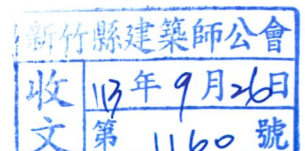 新竹縣建築師公會
收文
113年9月26日
第1160號